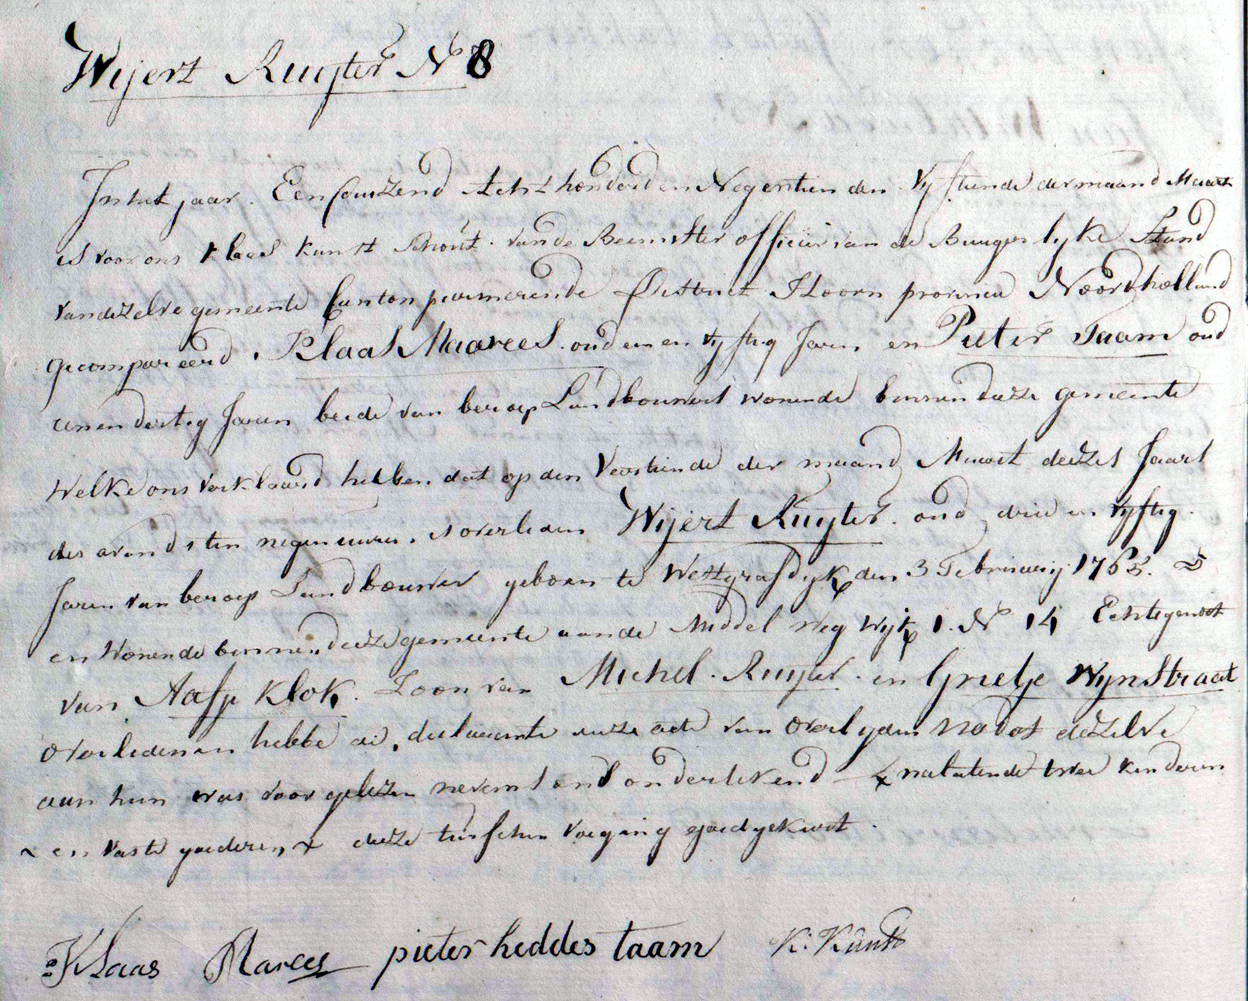 Wijert Ruijter N 8
In het jaar Een duizend Acht honderd en Negentien den Vyftiende der maand Maart
is voor ons Klaas Kunst Schout van de Beemster officier van de Burgerlyke Stand
van dezelve gemeente Canton purmerende District Hoorn provincie Noordholland
gecompareerd Klaas Maarees oud een en vyftig Jaren en Pieter Taam oud
een en dertig Jaren beide van beroep Landbouwers wonende binnen deeze gemeente
Welke ons verklaard hebben dat op den Veertiende der maand Maart deezes Jaars
des avonds ten negen uuren is overleden Wijert Ruyter oud drie en vyftig
Jaren van beroep Landbouwer geboren te Wettgrafdyk den 3 February 1765
en Wonende binnen deeze gemeente aan de Middel Weg Wijk 1 N 14 Echtegenoot
van Aafje Klok Zoon van Michel Ruyter en Grietje Wijnstraat
overleden en hebbe de declarante deeze acte van overlyden na dat dezelve
aan hun was voorgeleezen nevens ons onderteekend x nalatende twee kinderen
en vaste goederen x deeze tusschen voeging goedgekeurt
Klaas Marees pieter heddes taam K. Kunst